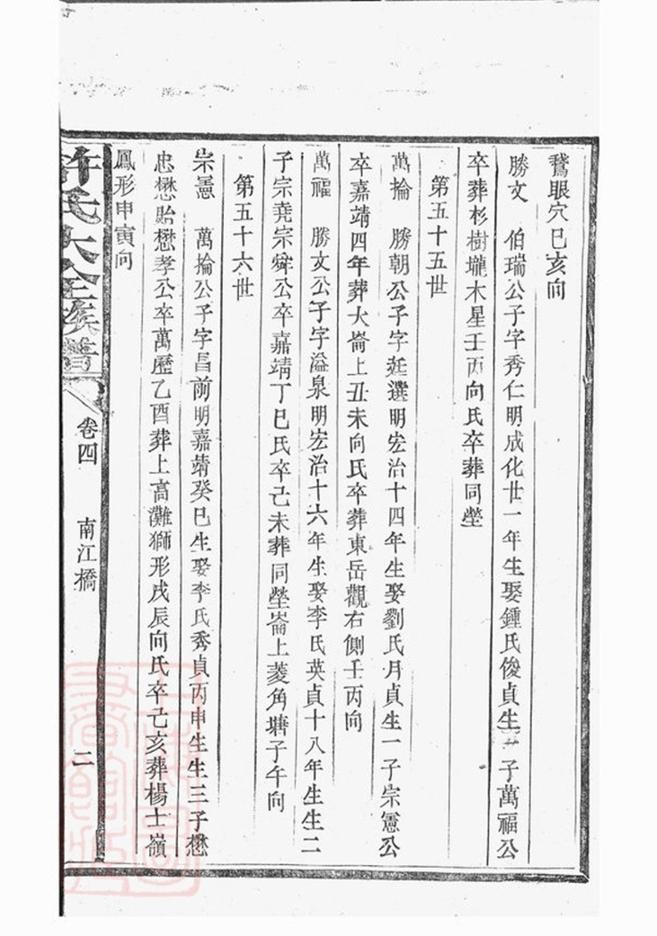 鵞眼穴巳亥向
勝文　伯瑞公子字秀仁明成化廿一年生娶鍾氏俊貞生一子萬福公
卒葬杉樹壠木星壬丙向氏卒葬同塋
第五十五世
萬掄　勝朝公子字廷選明宏治十四年生娶劉氏月貞生一子宗憲公
卒嘉靖四年葬大崙上丑未向氏卒葬東岳觀右側壬丙向
萬福　勝文公子字溢泉明宏治十六年生娶李氏英貞十八年生生二
子宗堯宗舜公卒嘉靖丁巳氏卒己未葬同塋崙上菱角塘子午向
第五十六世
宗憲　萬掄公子字昌前明嘉靖癸巳生娶李氏秀貞丙申生生三子懋
忠懋貽懋孝公卒萬歷乙酉葬上高灘獅形戌辰向氏卒己亥葬楊士嶺
鳳形申寅向
許氏大全族譜　卷四　南江橋　二